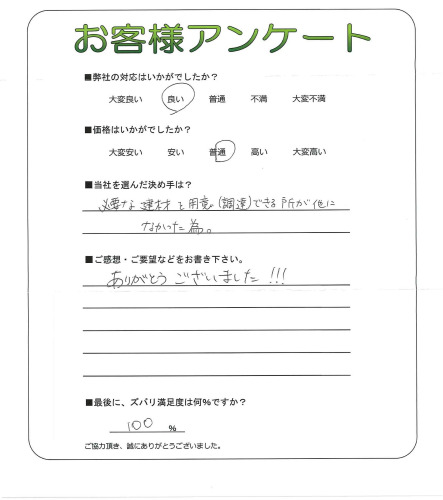 お客様アンケート
■弊社の対応はいかがでしたか？
大変良い 良い 普通 不満 大変不満
■価格はいかがでしたか？
大変安い 安い 普通 高い 大変高い
■当社を選んだ決め手は？
必要な建材を用意(調達)できる所が他に
なかった為。
■ご感想・ご要望などをお書き下さい。
ありがとうございました!!!
■最後に、ズバリ満足度は何％ですか？
100 ％
ご協力頂き、誠にありがとうございました。